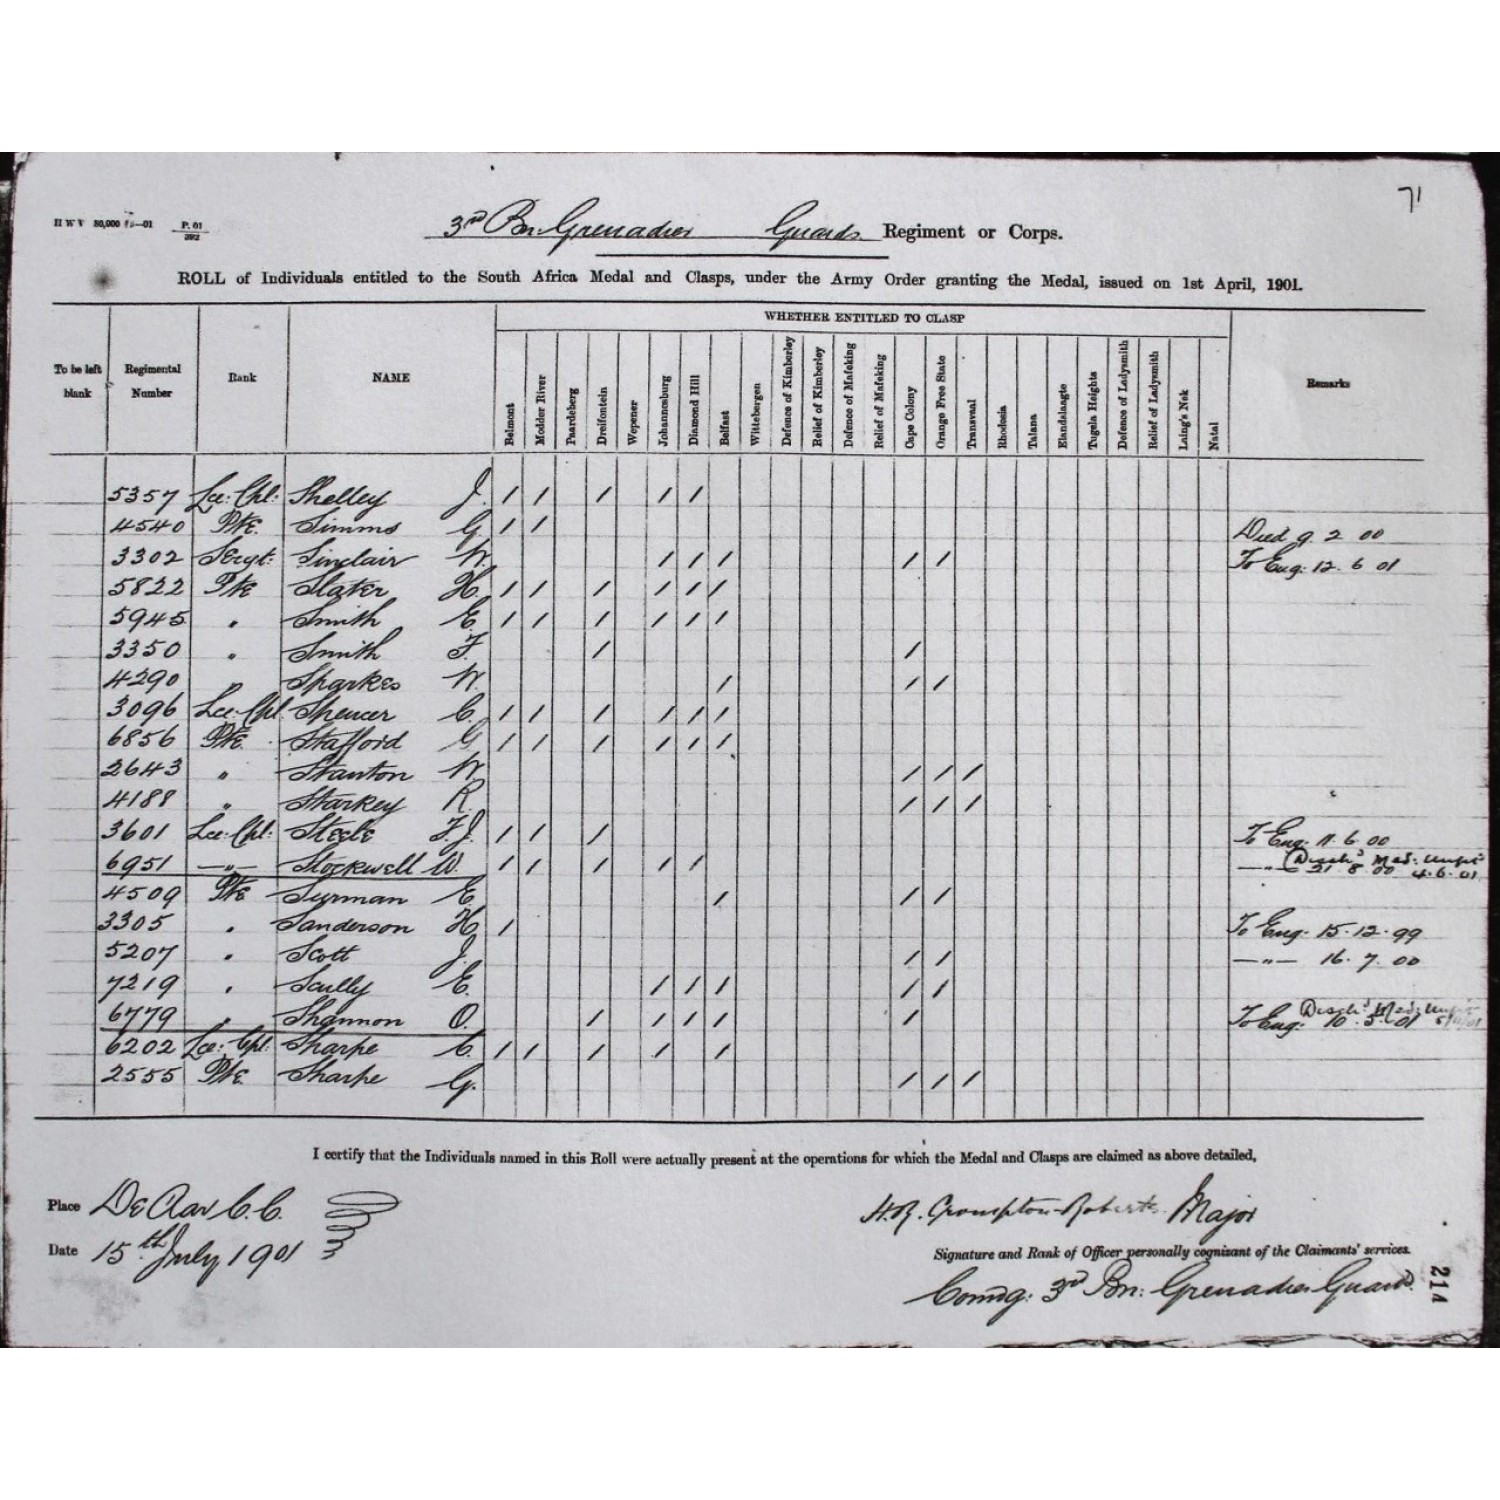 71
H W V 80,000 P. 01
3rd Bn Grenadier Guards Regiment or Corps.
ROLL of Individuals entitled to the South Africa Medal and Clasps, under the Army Order granting the Medal, issued on 1st April, 1901.
WHETHER ENTITLED TO CLASP
To be left blank Regimental Number Rank NAME Belmont Modder River Paardeberg Dreifontein Wepener Johannesburg Diamond Hill Belfast Wittebergen Defence of Kimberley Relief of Kimberley Defence of Mafeking Relief of Mafeking Cape Colony Orange Free State Transvaal Rhodesia Talana Elandslaagte Tugela Heights Defence of Ladysmith Relief of Ladysmith Laing's Nek Natal Remarks
5357 Lce: Cpl: Shelley J. / / / / /
4540 Pte. Simms G / / Died 9 2 00
3302 Sergt: Sinclair W. / / / / / To Eng: 12. 6 01
5822 Pte Slater H. / / / / / /
5945 " Smith E. / / / / / /
3350 " Smith F. / /
4290 " Sparkes W. / / /
3096 Lce: Cpl Spencer C. / / / / / /
6856 Pte. Stafford G / / / / / /
2643 " Stanton W. / / /
4188 " Starkey R. / / /
3601 Lce: Cpl: Steele F.J. / / / To Eng: 11. 6. 00
6951 —"— Stockwell W. / / / / / —"— 21 8 00 (Disch'd Med: Unfit 4.6.01
4509 Pte Surman E. / / /
3305 " Sanderson H. / To Eng: 15. 12. 99
5207 " Scott J. / / —"— 16. 7. 00
7219 " Scully E. / / / / /
6779 " Shannon O. / / / / / To Eng: 10. 5. 01 Disch'd Med: Unfit
6202 Lce: Cpl: Sharpe C. / / / / /
2555 Pte Sharpe G. / / /
I certify that the Individuals named in this Roll were actually present at the operations for which the Medal and Clasps are claimed as above detailed,
Place De Aar C.C.
H.R. Crompton-Roberts Major
Date 15th July 1901
Signature and Rank of Officer personally cognizant of the Claimants' services.
Comdg: 3rd Bn: Grenadier Guards.
214